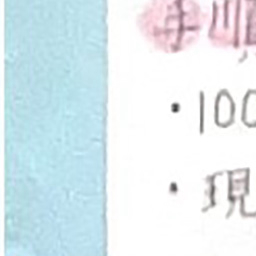 手順
・100
・現